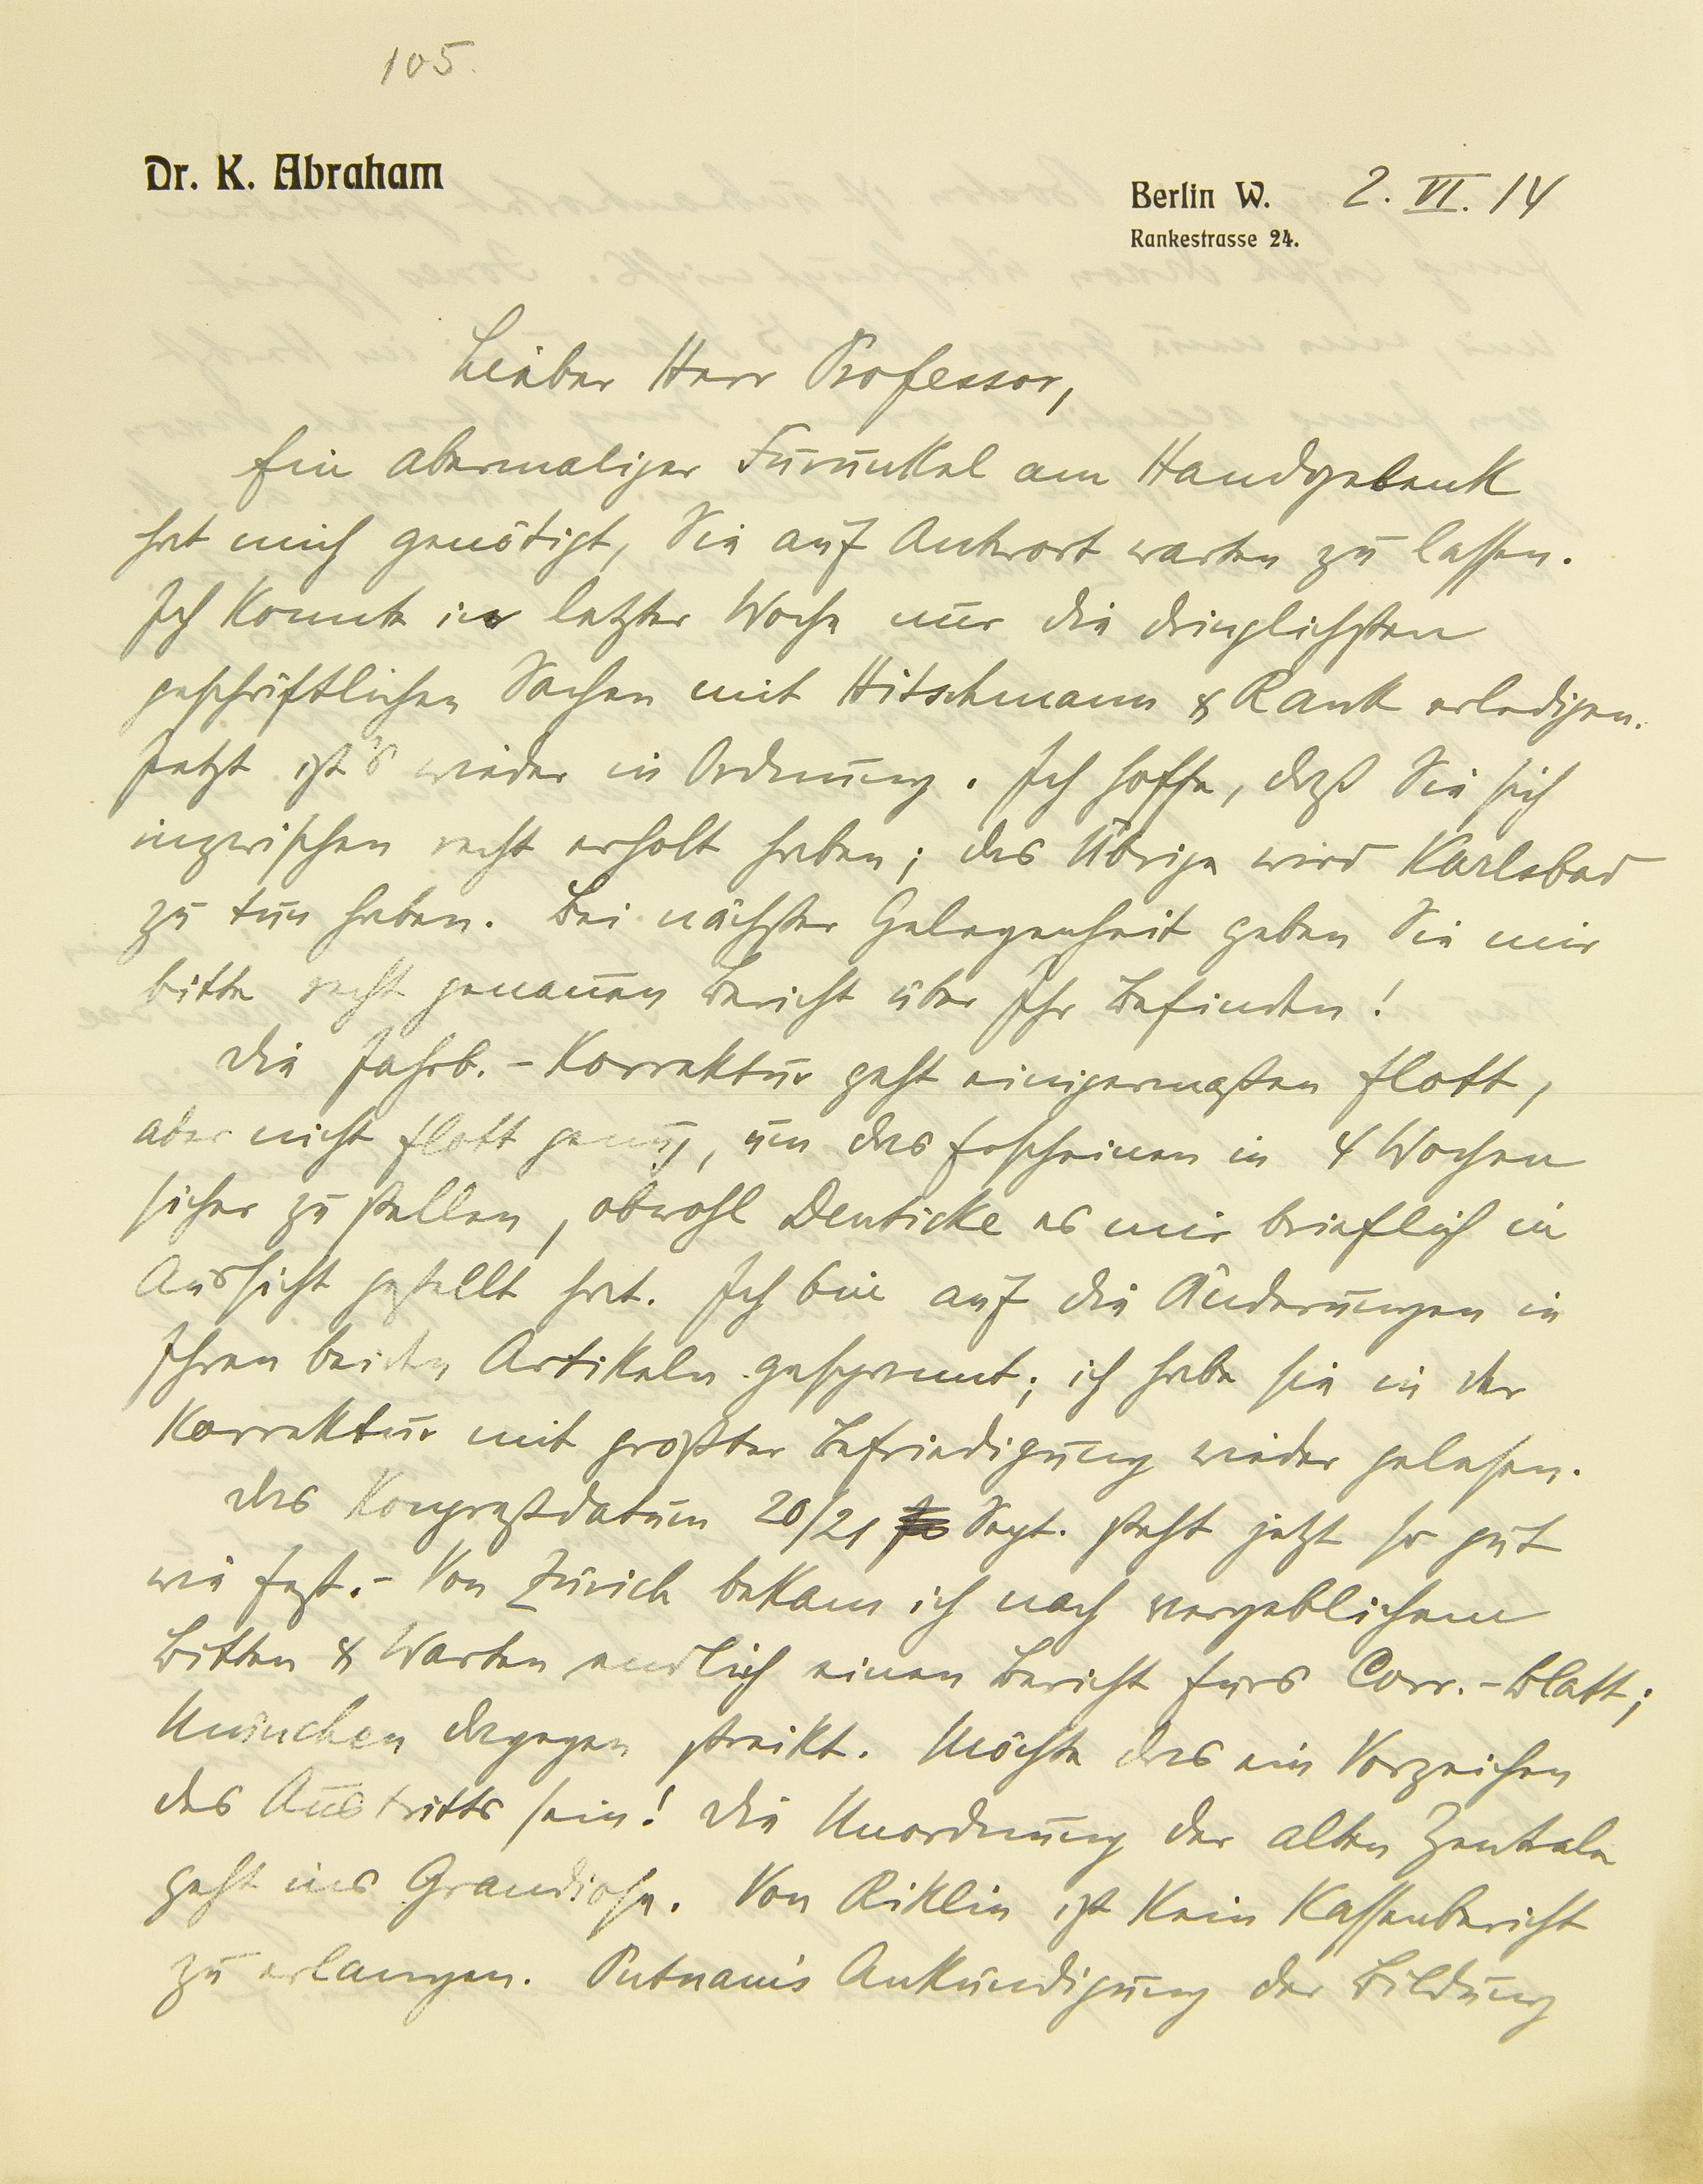 105.
Dr. K. Abraham
Berlin W. 2. VI. 14
Rankestrasse 24.
Lieber Herr Professor,
Ein abermaliger Furunkel am Handgelenk
hat mich genötigt, Sie auf Antwort warten zu lassen.
Ich konnte in letzter Woche nur die dringlichsten
geschäftlichen Sachen mit Hitschmann & Rank erledigen.
Jetzt ist's wieder in Ordnung. Ich hoffe, daß Sie sich
inzwischen recht erholt haben; das Übrige wird Karlsbad
zu tun haben. Bei nächster Gelegenheit geben Sie mir
bitte recht genauen Bericht über Ihr Befinden!
Die Jahrb.-Korrektur geht einigermaßen flott,
aber nicht flott genug, um das Erscheinen in 4 Wochen
sicher zu stellen, obwohl Deuticke es mir brieflich in
Aussicht gestellt hat. Ich bin auf die Änderungen in
Ihren beiden Artikeln gespannt; ich habe sie in der
Korrektur mit größter Befriedigung wieder gelesen.
Das Kongreßdatum 20/21 Sept. steht jetzt so gut
wie fest. - Von Zürich bekam ich nach vergeblichem
Bitten & Warten endlich einen Bericht fürs Corr.-Blatt;
München dagegen streikt. Möchte das ein Vorzeichen
des Austritts sein! Die Unordnung der alten Zentrale
geht ins Grandiose. Von Riklin ist kein Kassenbericht
zu erlangen. Putnam's Ankündigung der Bildung